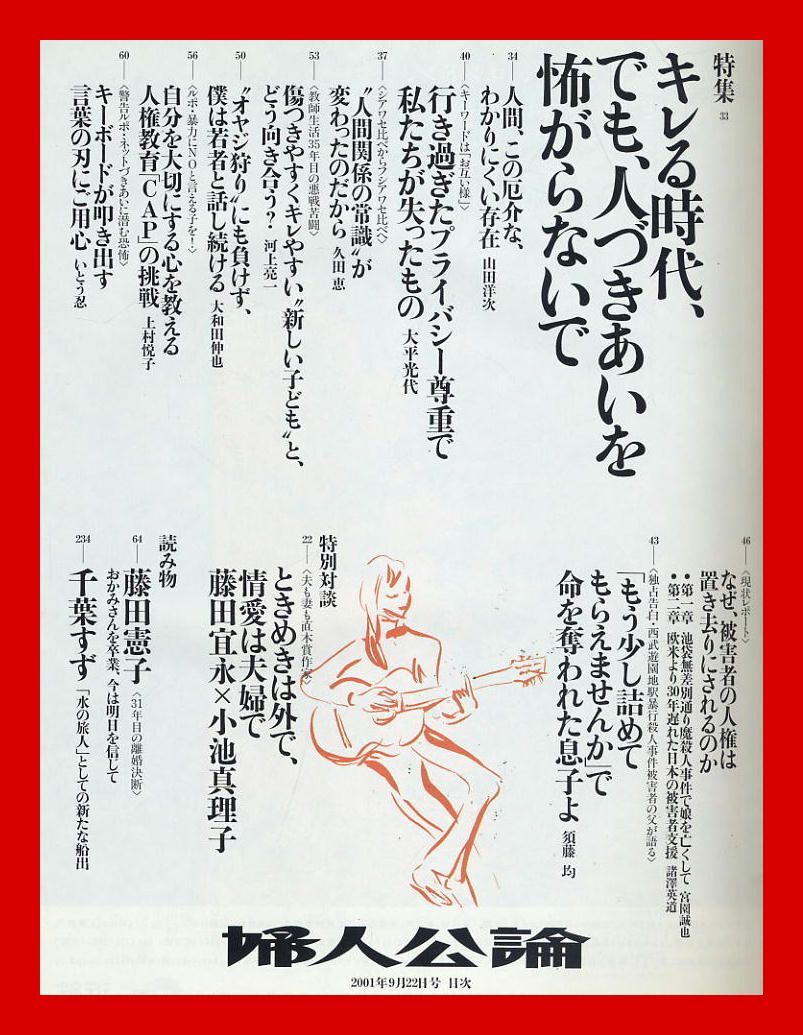 特集 33
キレる時代、
でも、人づきあいを
怖がらないで
34
人間、この厄介な、
わかりにくい存在 山田洋次
40
〈キーワードは「お互い様」〉
行き過ぎたプライバシー尊重で
私たちが失ったもの 大平光代
37
〈シアワセ比べからフシアワセ比べ〉
〝人間関係の常識〟が
変わったのだから 久田恵
53
〈教師生活35年目の悪戦苦闘〉
傷つきやすくキレやすい〝新しい子ども〟と、
どう向き合う? 河上亮一
50
〝オヤジ狩り〟にも負けず、
僕は若者と話し続ける 大和田伸也
56
〈ルポ・暴力にNOと言える子を!〉
自分を大切にする心を教える
人権教育「CAP」の挑戦 上村悦子
60
〈警告ルポ・ネットづきあいに潜む恐怖〉
キーボードが叩き出す
言葉の刃にご用心 いとう忍
46
〈現状レポート〉
なぜ、被害者の人権は
置き去りにされるのか
•第一章 池袋無差別通り魔殺人事件で娘を亡くして 宮園誠也
•第二章 欧米より30年遅れた日本の被害者支援 諸澤英道
43
〈独占告白・西武遊園地駅暴行殺人事件被害者の父が語る〉
「もう少し詰めて
もらえませんか」で
命を奪われた息子よ 須藤均
特別対談
22
〈夫も妻も直木賞作家〉
ときめきは外で、
情愛は夫婦で
藤田宜永×小池真理子
読み物
64
藤田憲子〈31年目の離婚決断〉
おかみさんを卒業、今は明日を信じて
234
千葉すず 「水の旅人」としての新たな船出
婦人公論
2001年9月22日号 目次